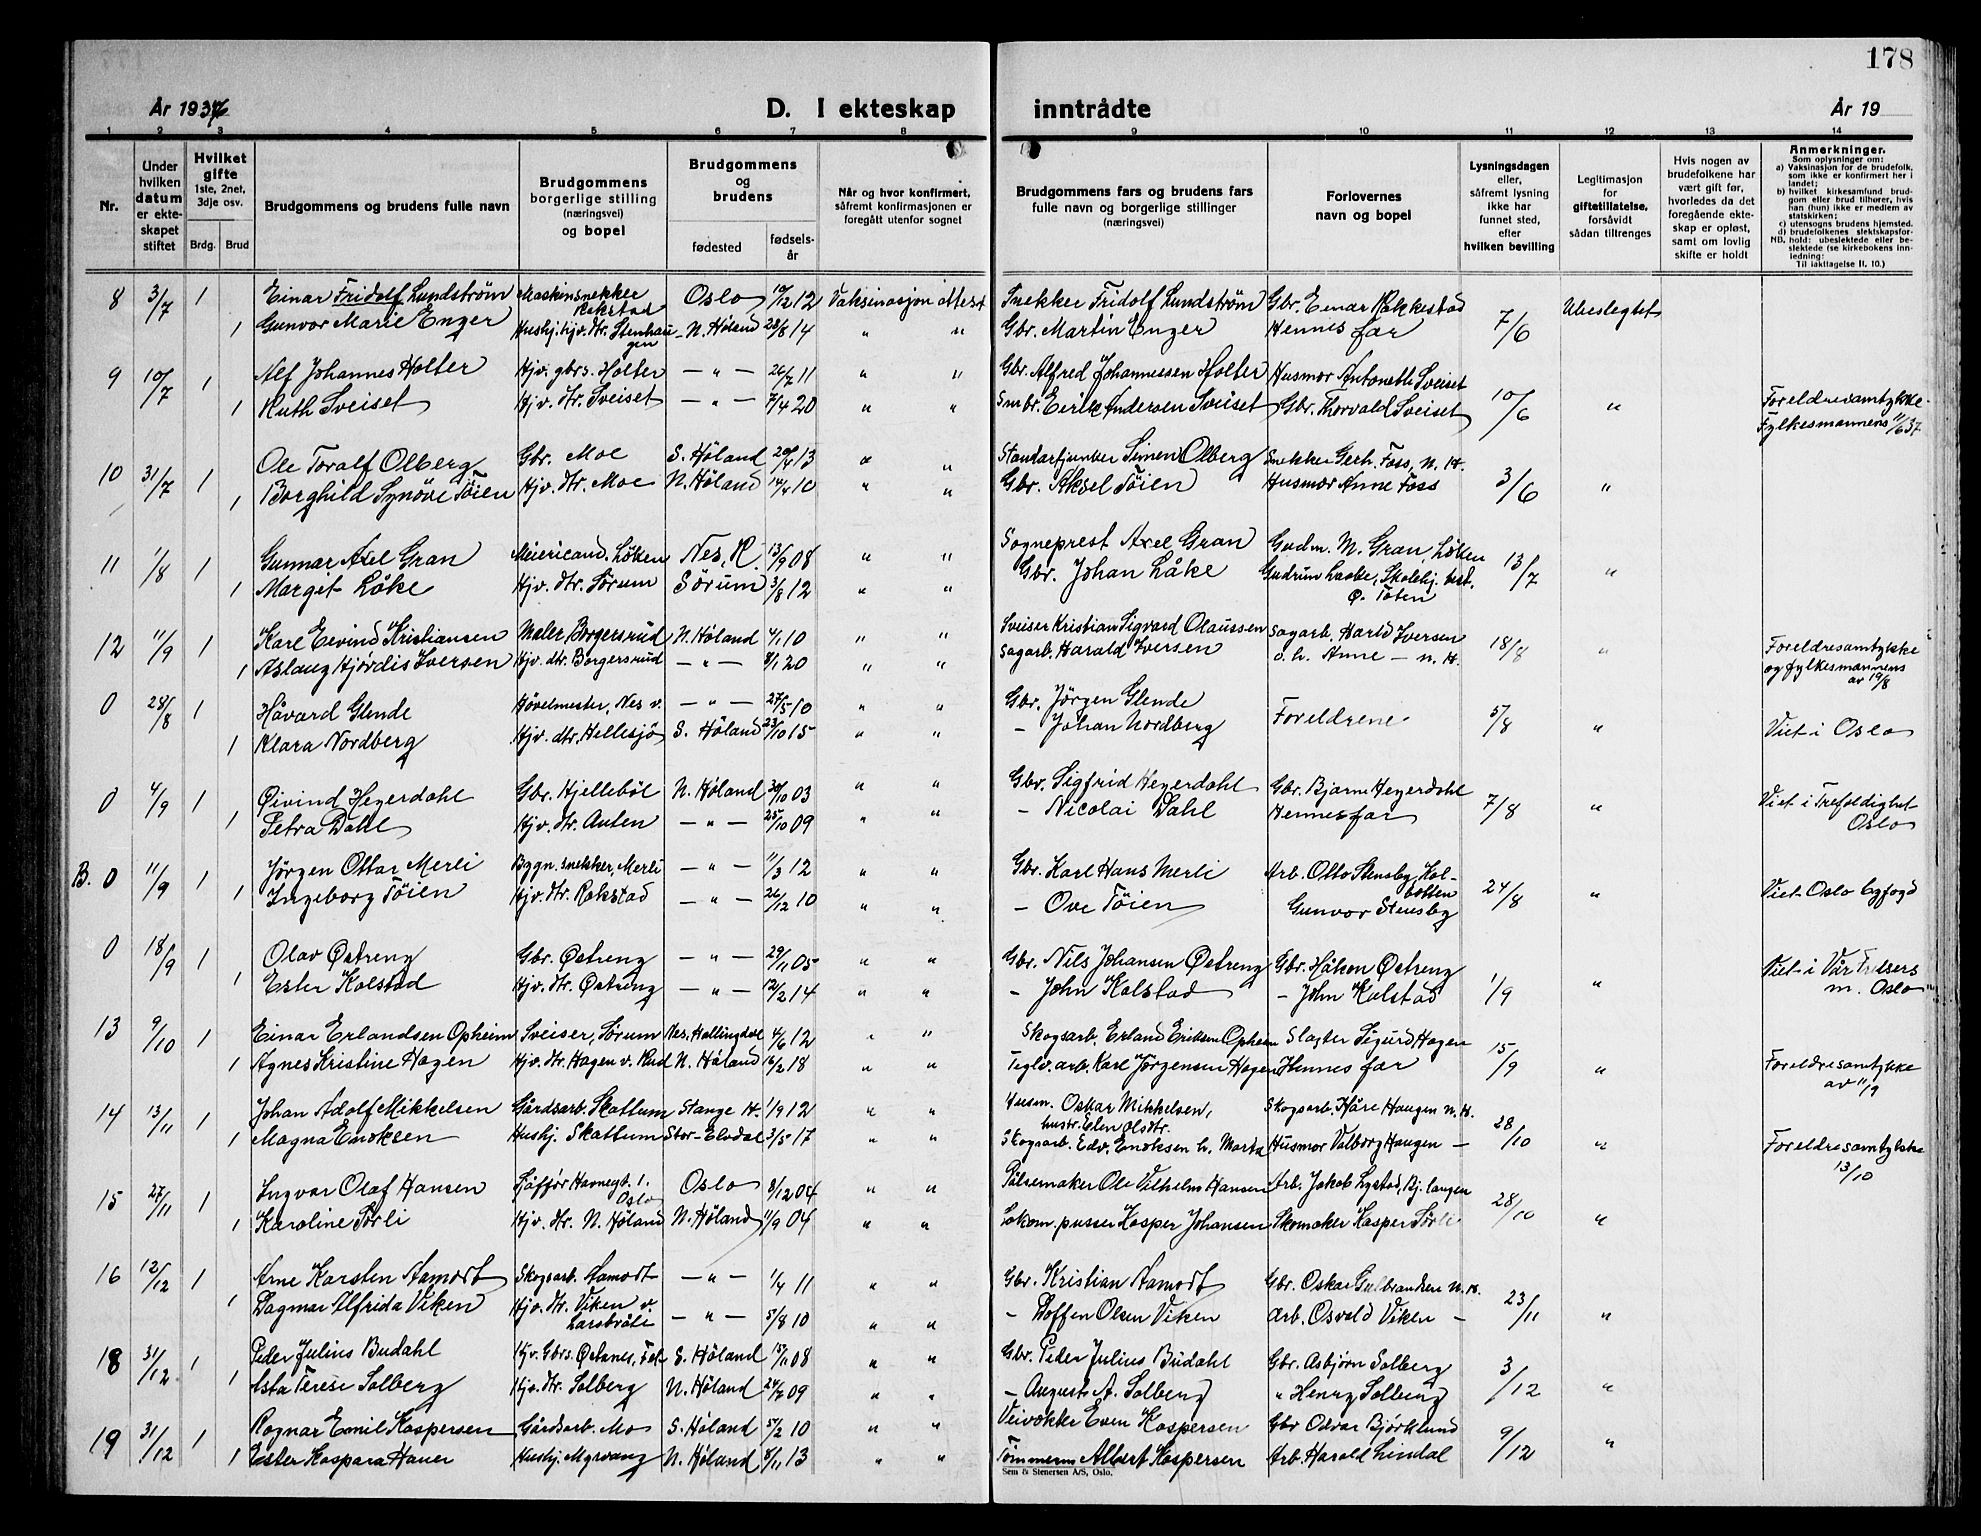 178
År 1937
D. I ekteskap inntrådte
År 19
1 2 3 4 5 6 7 8 9 10 11 12 13 14
Nr.
Under hvilken datum er ekteskapet stiftet
Hvilket gifte 1ste, 2net, 3dje osv.
Brdg. Brud
Brudgommens og brudens fulle navn
Brudgommens borgerlige stilling (næringsvei) og bopel
Brudgommens og brudens
fødested
fødselsår
Når og hvor konfirmert, såfremt konfirmasjonen er foregått utenfor sognet
Brudgommens fars og brudens fars fulle navn og borgerlige stillinger (næringsvei)
Forlovernes navn og bopel
Lysningsdagen eller, såfremt lysning ikke har funnet sted, efter hvilken bevilling
Legitimasjon for giftetillatelse, forsåvidt sådan tiltrenges
Hvis nogen av brudefolkene har vært gift før, hvorledes da det foregående ekteskap er opløst, samt om lovlig skifte er holdt
Anmerkninger.
Som oplysninger om:
a) Vaksinasjon for de brudefolk, som ikke er konfirmert her i landet;
b) hvilket kirkesamfund brudgom eller brud tilhører, hvis han (hun) ikke er medlem av statskirken;
c) utensogns brudens hjemsted.
d) brudefolkenes slektskapsforhold: ubeslektede eller beslektede (se kirkebokens innledning:
NB.
Til iakttagelse II, 10.)
8 3/7 1 Einar Fridolf Lundstrøm Maskinsnekker Rakstad Oslo 19/12 12 Vaksinasjon attest Snekker Fridolf Lundstrøm Gbr. Einar Rakkestad 7/6 Ubeslegtet
1 Gunvor Marie Enger Hushj. hjv. dtr. Stenhaugen N. Høland 28/8 14 " " Gbr. Martin Enger Hennes far
9 10/7 1 Alf Johannes Holter Hjv. gbrs. Holter — " — 26/7 11 " " Gbr. Alfred Johannessen Holter Husmor Antoneth Sveiset 10/6 "
1 Ruth Sveiset Hjv. dtr. Sveiset — " — 7/4 20 " " Smbr. Eirik Andersen Sveiset Gbr. Thorvald Sveiset Foreldresamtykke. Fylkesmannens 11/6 37
10 31/7 1 Ole Toralf Olberg Gbr. Moe S. Høland 20/4 13 " " Standarfjunker Simen Olberg Snekker Gerh. Foss, N. H. 3/6 "
1 Borghild Synøve Töien Hjv. dtr. Moe N. Høland 14/4 10 " " Gbr. Aksel Töien Husmor Anne Foss
11 1/8 1 Gunnar Axel Gran Meiericand. Løken Nes, R. 13/9 08 " " Sogneprest Axel Gran Gudm. M. Gran, Løken 13/7 "
1 Margit Låke Hjv. dtr. Sørum Sørum 3/8 12 " " Gbr. Johan Låke Gudrun Laake, Skolebj. best. Ø. Toten
12 11/9 1 Karl Eivind Kristiansen Maler Borgersrud N. Høland 4/1 10 " " Sveiser Kristian Sigvard Olaussen Sagarb. Harld Iversen 18/8 "
1 Aslaug Hjørdis Iversen Hjv. dtr. Borgersrud — " — 8/1 20 " " Sagarb. Harald Iversen o. h. Anne — N. H. Foreldresamtykke og fylkesmannens av 19/8
0 28/8 1 Håvard Glende Høvelmester, Nes v. — " — 27/5 10 " " Gbr. Jörgen Glende Foreldrene 5/8 "
1 Klara Nordberg Hjv. dtr. Hellesjø S. Høland 23/10 15 " " — Johan Nordberg Viet i Oslo
0 4/9 1 Øivind Heyerdahl Gbr. Hjellebøl N. Høland 30/10 03 " " Gbr. Sigfrid Heyerdahl Gbr. Bjarne Heyerdahl 7/8 "
1 Petra Dahl Hjv. dtr. Auten — " — 25/10 09 " " — Nicolai Dahl Hennes far Viet i Trefoldighet Oslo
B. 0 11/9 1 Jörgen Ottar Merli Bygn. snekker, Merli — " — 11/3 12 " " Gbr. Karl Hans Merli Arb. Otto Stensby, Kolbotten 24/8 "
1 Ingeborg Töien Hjv. dtr. Rakstad — " — 26/12 10 " " — Ove Töien Gunvor Stensby Viet Oslo byfogd
0 18/9 1 Olav Østreng Gbr. Østreng — " — 29/11 05 " " Gbr. Nils Johansen Østreng Gbr. Håkon Østreng 1/9 "
1 Ester Kolstad Hjv. dtr. Østreng — " — 12/2 14 " " — John Kolstad — John Kolstad Viet i Vår Frelsers m. Oslo
13 9/10 1 Einar Erlandsen Opheim Sveiser, Sørum Nes, Hallingdal 4/6 12 " " Skogsarb. Erland Eriksen Opheim Slagter Sigurd Hagen 15/9 "
1 Agnes Kristine Hagen Hjv. dtr. Hagen v. Rud N. Høland 16/2 18 " " Teglv. arb. Karl Jörgensen Hagen Hennes far Foreldresamtykke av 11/9
14 13/11 1 Johan Adolf Mikkelsen Gårdsarb. Skattum Stange H. 1/9 12 " " Husm. Oskar Mikkelsen, hustr. Elen Olsdtr. Skogsarb. Kåre Haugen N. H. 28/10 "
1 Magna Enoksen Hushj. Skattum Stor-Elvdal 3/5 17 " " Skogsarb. Edv. Enoksen h. Marta Husmor Valborg Haugen — Foreldresamtykke 13/10
15 27/11 1 Ingvar Olaf Hansen Sjåfför Havnegt. 1. Oslo Oslo 8/12 04 " " Pølsemaker Ole Vilhelm Hansen Arb. Jakob Lystad, Bj. langen 28/10 "
1 Karoline Sørli Hjv. dtr. N. Høland N. Høland 11/9 04 " " Lokom. pusser Kasper Johansen Skomaker Kasper Sørli
16 12/12 1 Arne Karsten Aamodt Skogsarb. Aamodt — " — 1/4 11 " " Gbr. Kristian Aamodt Gbr. Oskar Gulbrandsen N. H. 23/11 "
1 Dagmar Alfrida Viken Hjv. dtr. Viken v. Larsbråti — " — 5/8 10 " " — Doffen Olsen Viken Arb. Osvald Viken —
18 31/12 1 Peder Julius Budahl Hjv. Gbrs. Østnes, Fet S. Høland 15/11 08 " " Gbr. Peder Julius Budahl Gbr. Asbjørn Solberg 3/12 "
1 Asta Terese Solberg Hjv. dtr. Solberg N. Høland 24/7 09 " " — August A. Solberg " Henry Solberg
19 31/12 1 Ragnar Emil Kaspersen Gårdsarb. Mo S. Høland 5/2 10 " " Veivokter Even Kaspersen Gbr Oskar Bjørklund 9/12 "
1 Ester Kaspara Hauer Hushj. Myrvang N. Høland 8/11 13 " " Tømmerm Albert Kaspersen Arb. Harald Lindal
Sem & Stenersen A/S, Oslo.